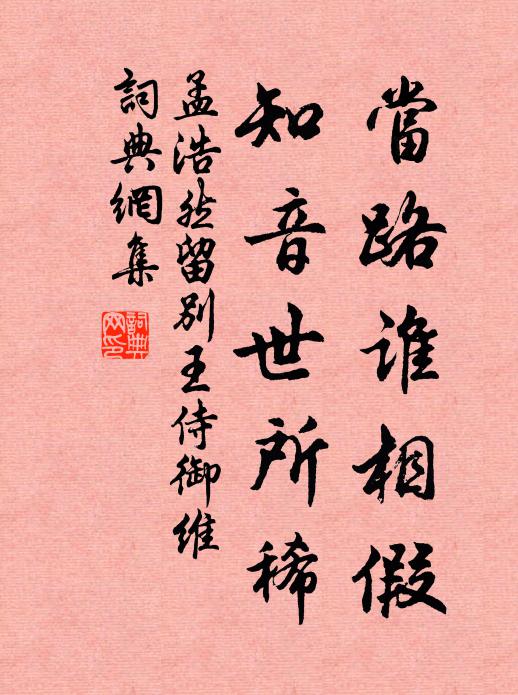 當路誰相假
知音世所稀
孟浩然留別王侍御維
詞典網集
詞典網印